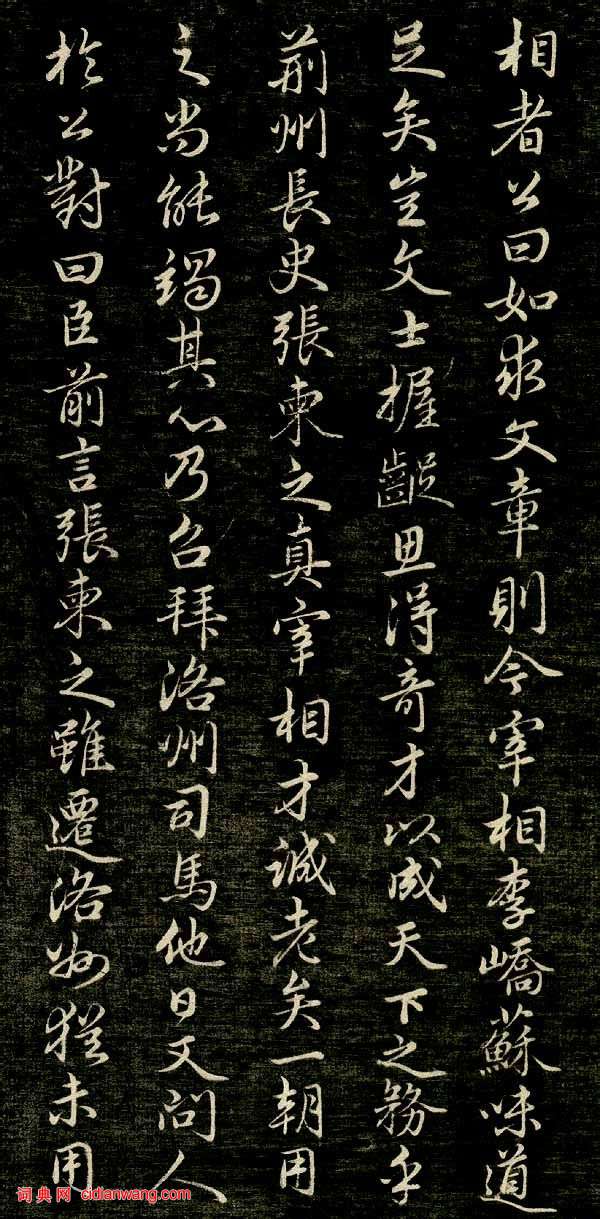 相者公曰如求文章則今宰相李嶠蘇味道
足矣豈文士握齪思得奇才以成天下之務乎
荊州長史張柬之真宰相才誠老矣一朝用
之尚能竭其心乃召拜洛州司馬他日又問人
於公對曰臣前言張柬之雖遷洛州猶未用
词典网 cidianwang.com